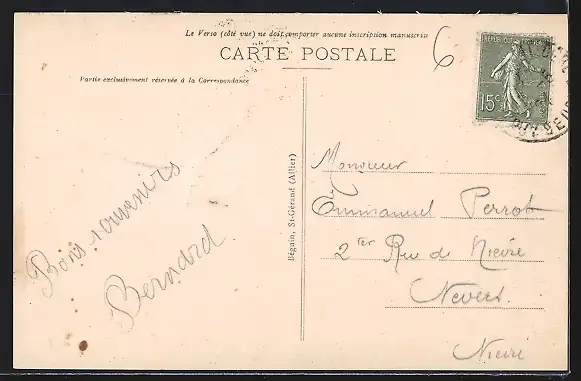 Le Verso (côté vue) ne doit comporter aucune inscription manuscrite
CARTE POSTALE
6
Partie exclusivement réservée à la Correspondance
15c
Bons souvenirs
Bernard
Béguin, St-Gérand (Allier)
Monsieur
Emmanuel Perrot
2ter Rue de Nièvre
Nevers.
Nièvre